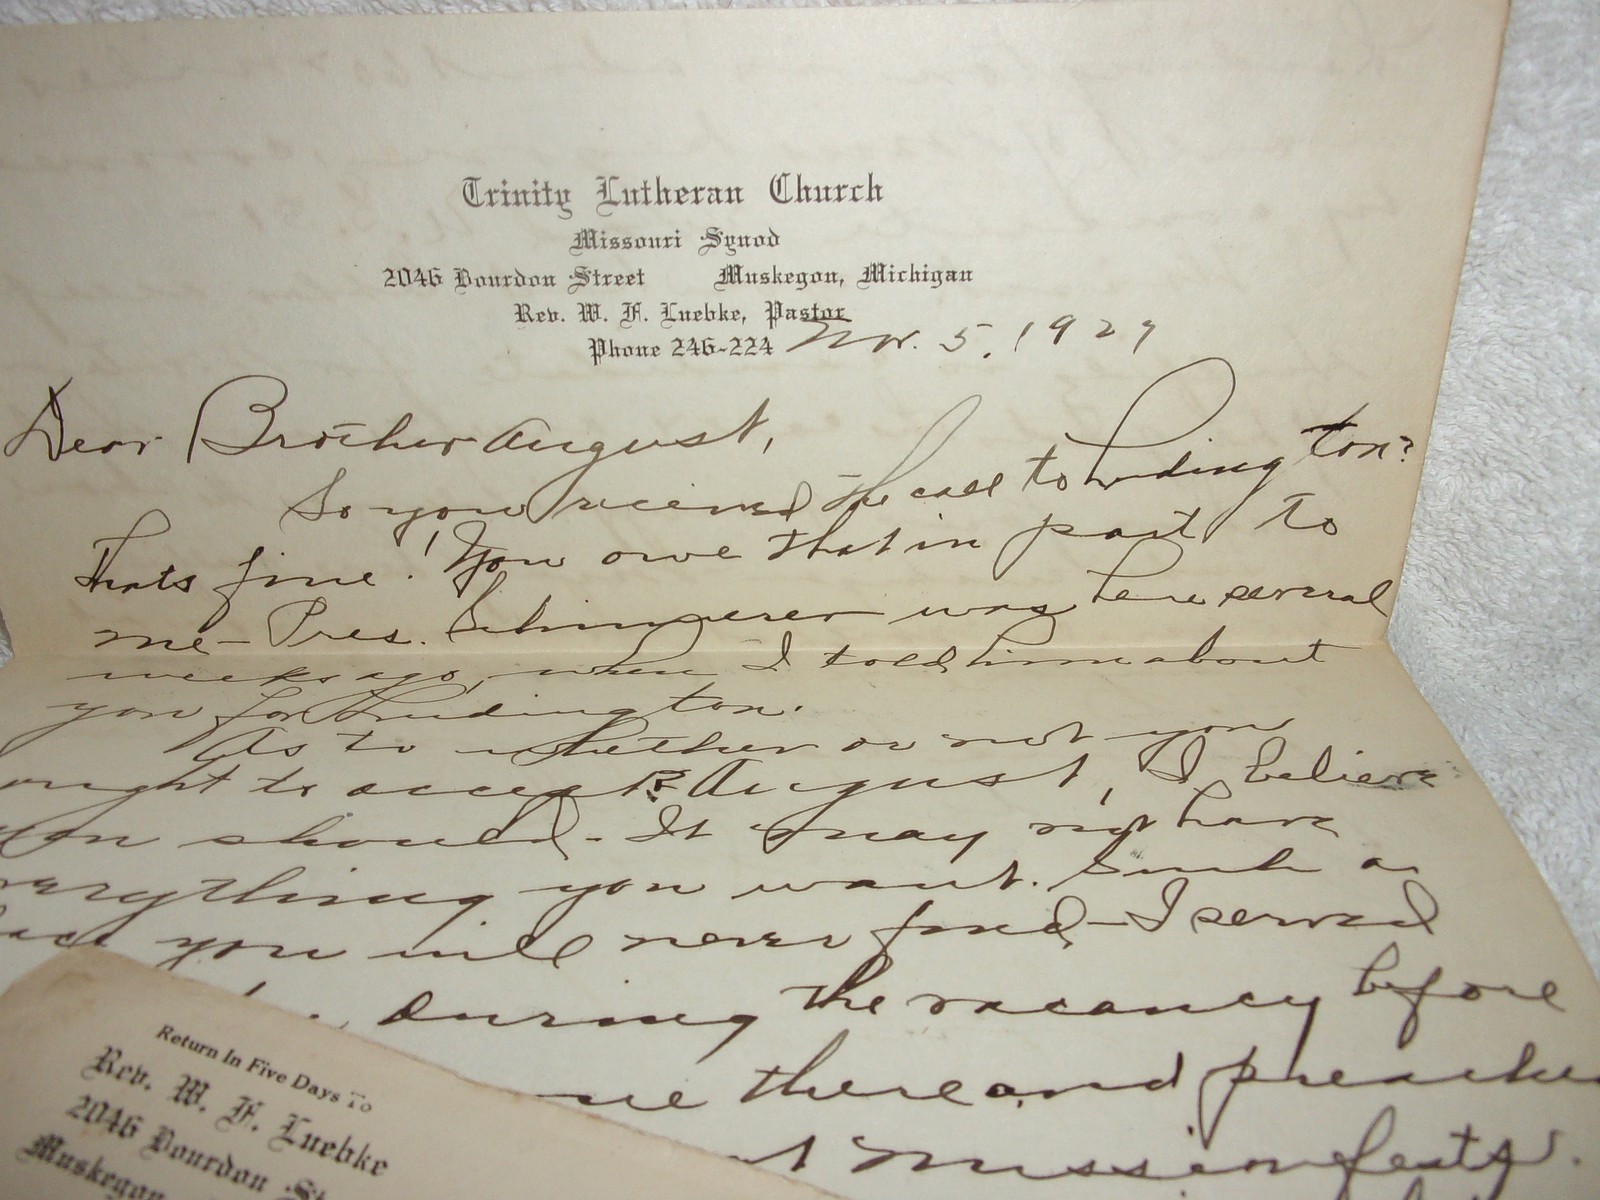 Trinity Lutheran Church
Missouri Synod
2046 Bourdon Street Muskegon, Michigan
Rev. W. F. Luebke, Pastor
Phone 246-224 Nov. 5, 1929
Dear Brother August,
So you received the call to Ludington?
Thats fine! You owe that in part to
me- Pres. was here several
weeks ago, when I told him about
you for Ludington.
As to whether or not you
ought to accept August, I believe
you should - It may not have
everything you want. Such a
place you will never find - I served
during the vacancy before
there and preached
at Missionfests.
Return In Five Days To
Rev. W. F. Luebke
2046 Bourdon St
Muskegon